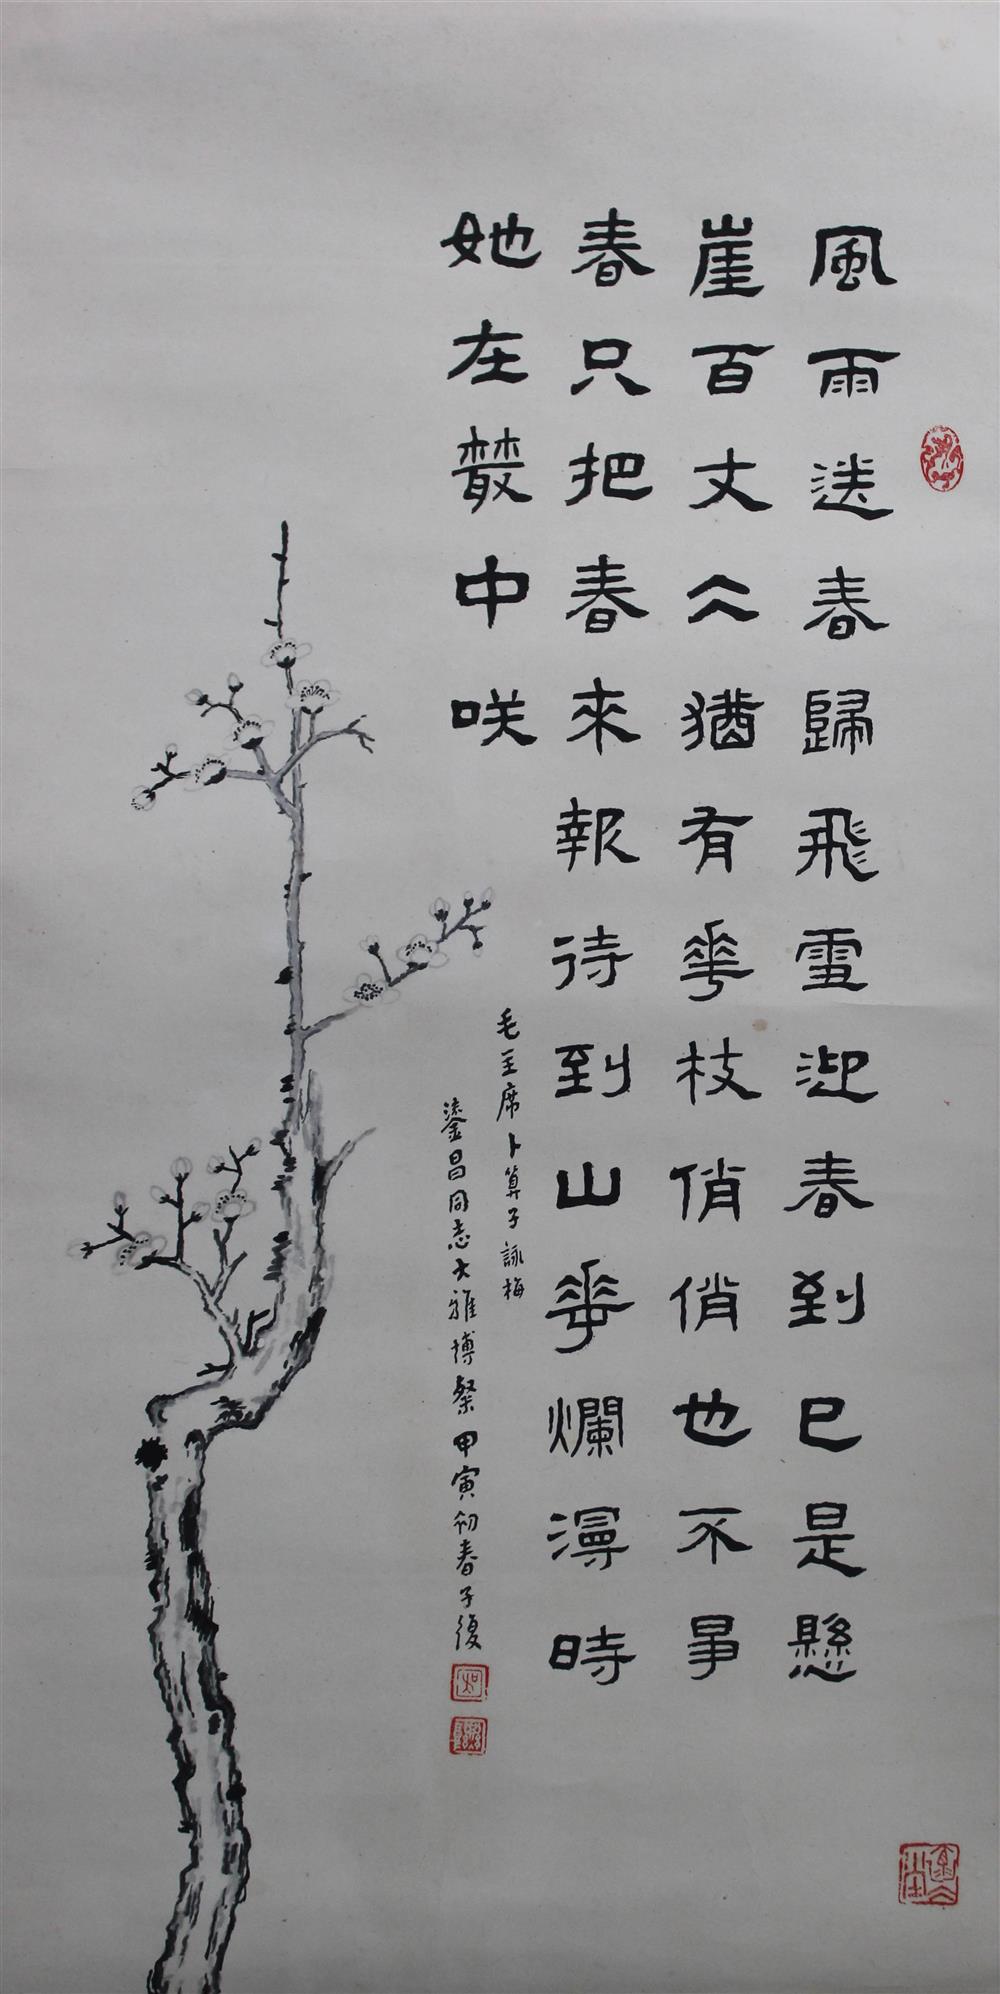 風雨送春歸飛雪迎春到已是懸
崖百丈仌猶有華枝俏俏也不爭
春只把春來報待到山華爛漫時
她在叢中咲
毛主席卜算子詠梅
鎏昌同志大雅博粲甲寅初春子復